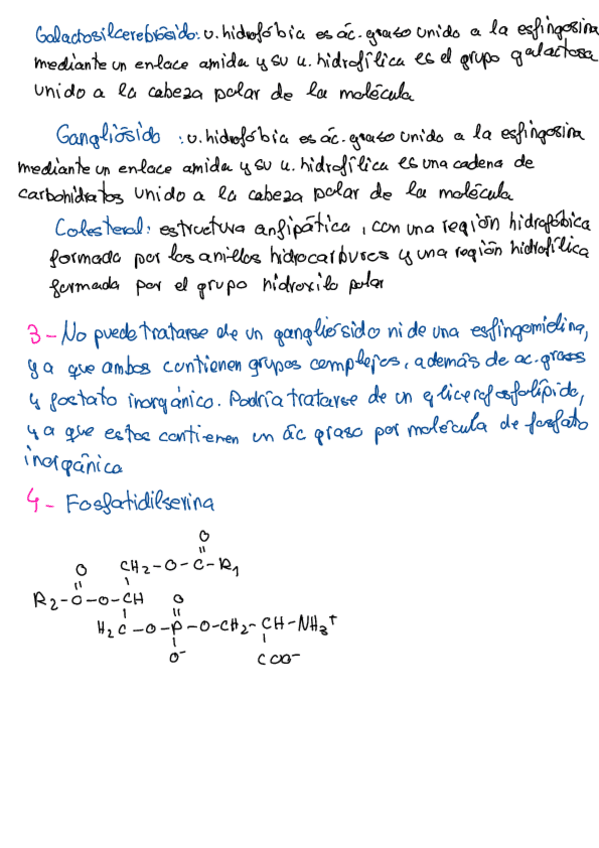 Galactosilcerebrósido: u. hidrofóbia es ác. graso unido a la esfingosina
mediante un enlace amida y su u. hidrofílica es el grupo galactosa
unido a la cabeza polar de la molécula
Gangliósido : u. hidrofóbia es ác. graso unido a la esfingosina
mediante un enlace amida y su u. hidrofílica es una cadena de
carbohidratos unido a la cabeza polar de la molécula
Colesterol: estructura anfipática, con una región hidrofóbica
formada por los anillos hidrocarburos y una región hidrofílica
formada por el grupo hidroxilo polar
3- No puede tratarse de un gangliósido ni de una esfingomielina,
ya que ambos contienen grupos complejos, además de ac. grasos
y fosfato inorgánico. Podría tratarse de un glicerofosfolípido,
ya que estos contienen un ác graso por molécula de fosfato
inorgánica
4- Fosfatidilserina
O
O CH2-O-C-R1
R2-C-O-CH O
H2C-O-P-O-CH2-CH-NH3+
O- COO-